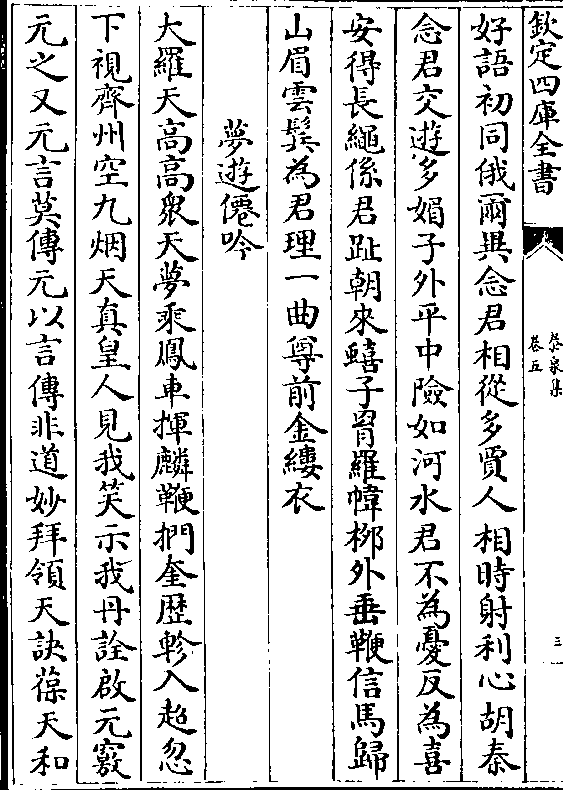 欽定四庫全書
柴泉集
卷五
三
好語初同俄爾異念君相從多賈人相時射利心胡泰
念君交遊多媚子外平中險如河水君不為憂反為喜
安得長繩係君趾朝來蟢子罥羅幃栁外垂鞭信馬歸
山眉雲鬂為君理一曲尊前金縷衣
夢遊僊吟
大羅天高高衆天夢乘鳳車揮麟鞭捫奎歴軫入超忽
下視齊州空九烟天真皇人見我笑示我丹詮啟元竅
元之又元言莫傳元以言傳非道妙拜領天訣葆天和